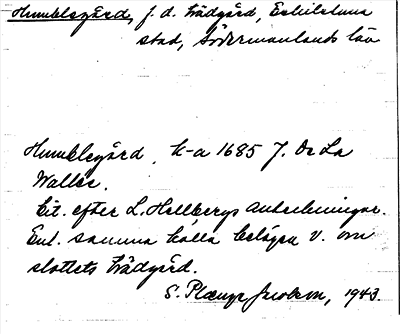 Humblegård, f. d. trädgård, Eskilstuna
stad, Södermanlands län
Humblegård, k-a 1685 J. De La
Wallée.
Cit. efter L. Hellbergs anteckningar.
Enl. samma källa belägen V. om
slottets trädgård.
S. Jacobson, 1943.